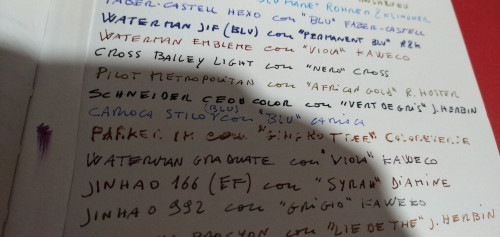 "BLU MARE" ROHRER & KLINGNER
FABER-CASTELL HEXO con "BLU" FABER-CASTELL
WATERMAN JIF (BLU) con "PERMANENT BLU" R&K
WATERMAN EMBLEME con "VIOLA" KAWECO
CROSS BAILEY LIGHT con "NERO" CROSS
PILOT METROPOLITAN con "AFRICAN GOLD" R. HOSTER
SCHNEIDER CEOD COLOR con "VERT DE GRIS" J. HERBIN
(BLU)
CARIOCA STILOY con "BLU" CARIOCA
PARKER IM con TREE"
WATERMAN GRADUATE con "VIOLA" KAWECO
JINHAO 166 (EF) con "SYRAH" DIAMINE
JINHAO 992 con "GRIGIO" KAWEKO
PROCYON con "LIE DE THE" J. HERBIN